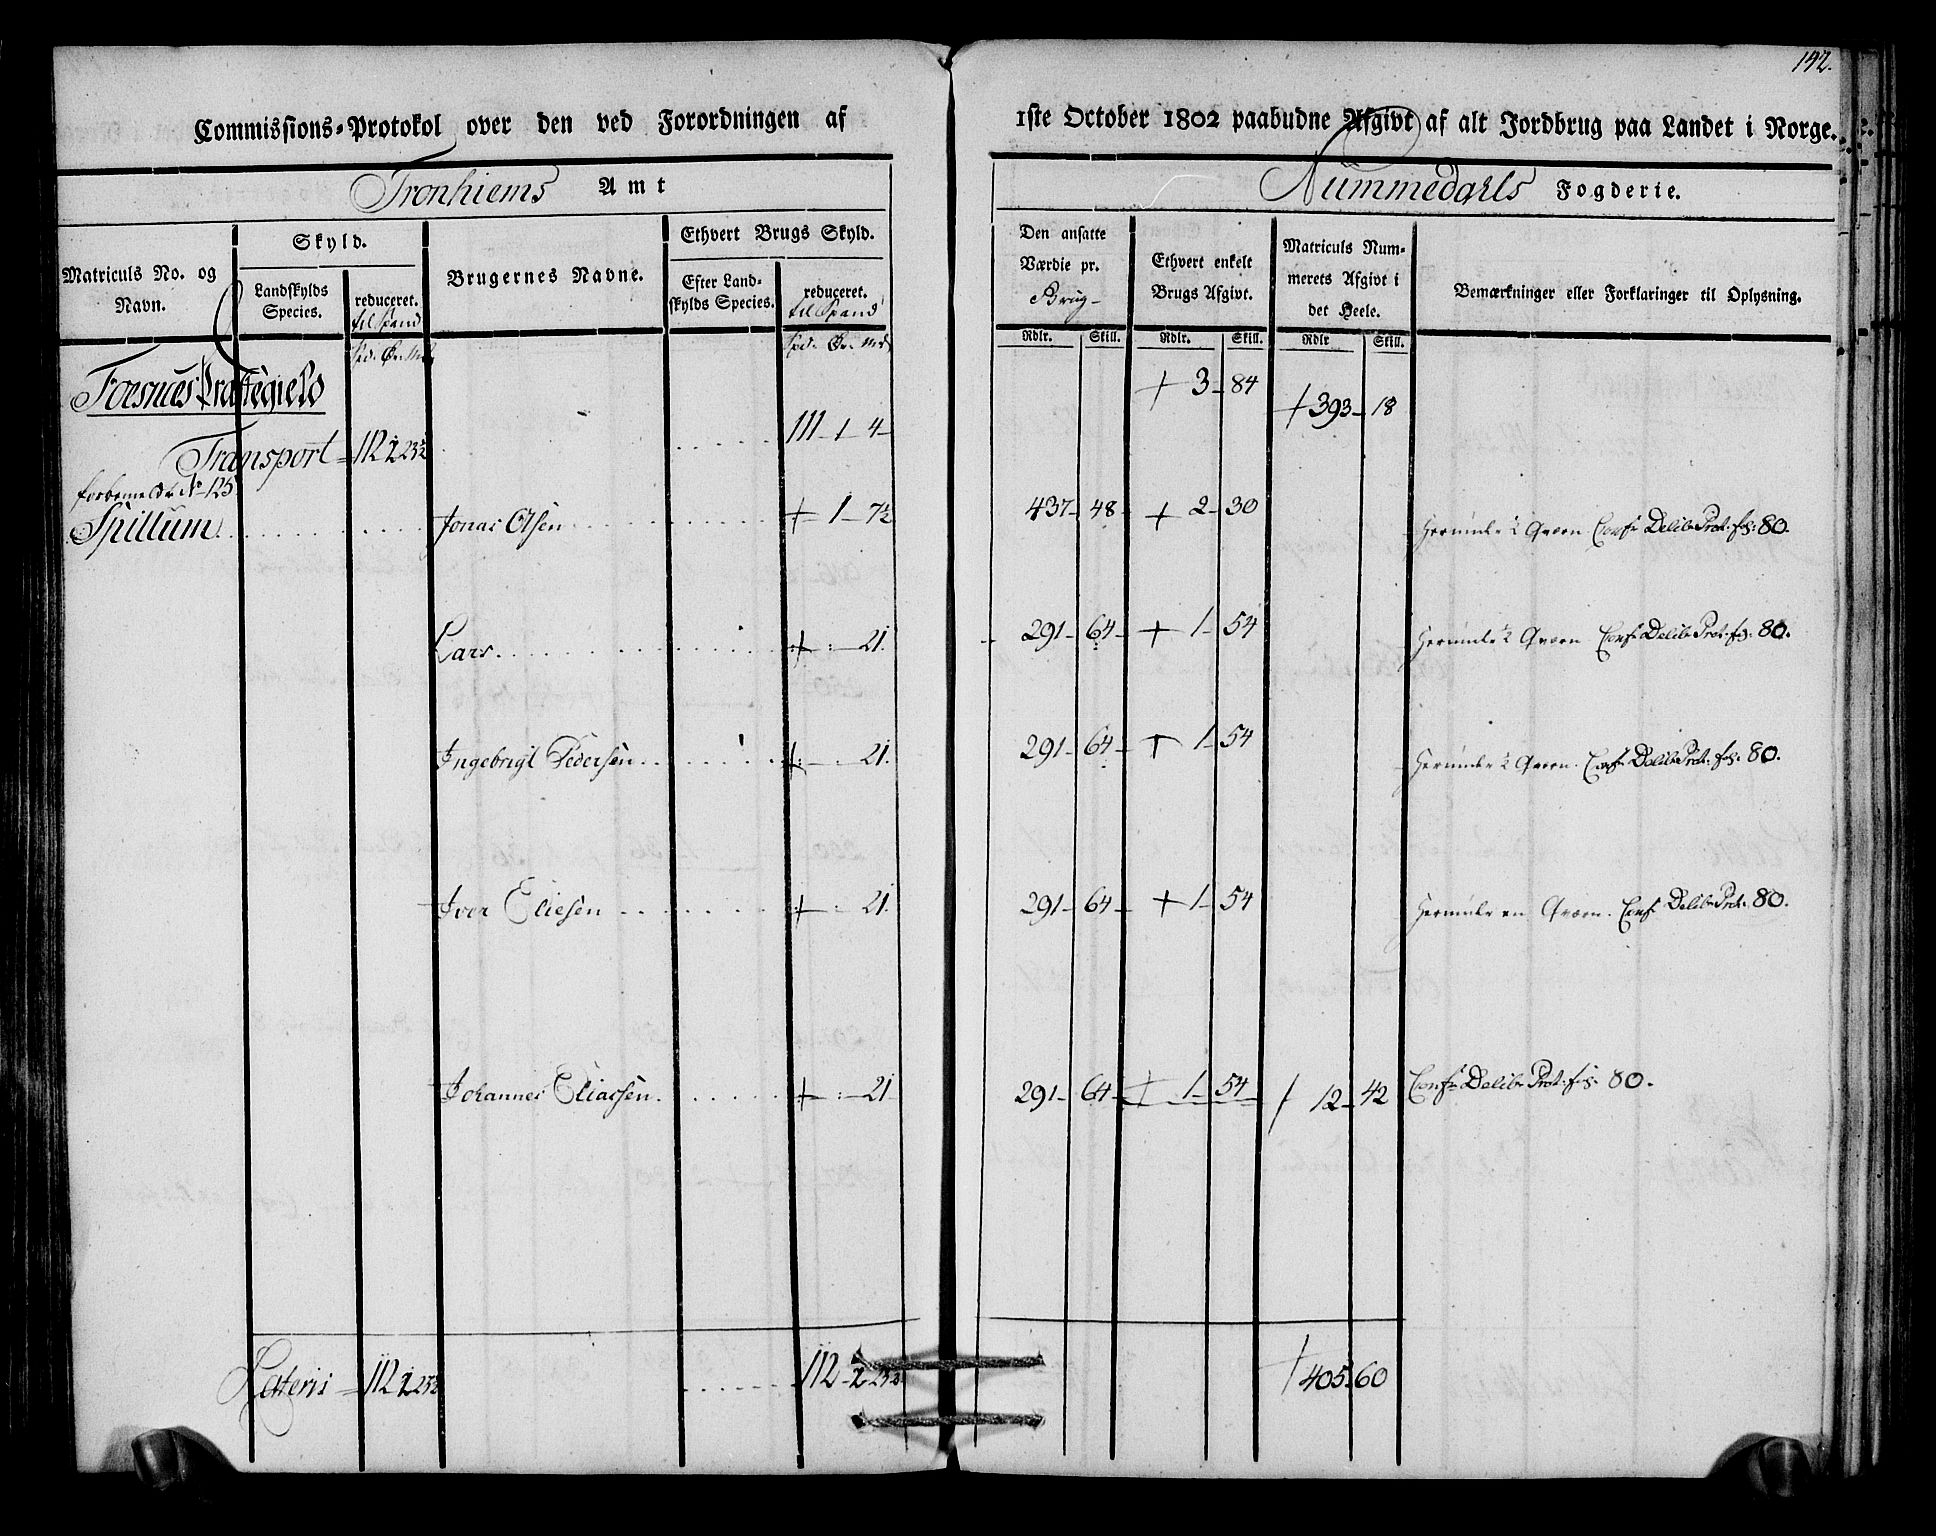 142.
Commissions-Protokol over den ved Forordningen af 1ste October 1802 paabudne Afgivt af alt Jordbrug paa Landet i Norge.
Tronhiems Amt
Nummedahls Fogderie.
Matriculs No. og Navn.
Skyld.
Landskylds Species.
reduceret. til Spand
Brugernes Navne.
Ethvert Brugs Skyld.
Efter Landskylds Species.
reduceret. til Spand
Den ansatte Værdie pr. Brug
Ethvert enkelt Brugs Afgivt.
Matriculs Nummerets Afgivt i det Heele.
Bemærkninger eller Forklaringer til Oplysning.
Rdlr. Skill. Rdlr. Skill. Rdlr Skill.
Foesnæs Præstegield
+ 3 - 84
+ 393 - 18
Transport = 112 2 23½ 111 - 1 4 -
No 125
Spillum Jonas Olsen + 1 - 7½ 437 - 48 + 2 - 30 Herunder ½ Qværn Conf: Delib: Prot: fol: 80.
Lars + : 21. 291 - 64 + 1 - 54 Herunder ½ Qværn Conf: Delib: Prot: fol: 80.
Ingebrigt Pedersen + : 21. 291 - 64 + 1 - 54 Herunder ½ Qværn. Conf: Delib: Prot: fol: 80.
Iver Eliesen + : 21. 291 - 64 + 1 - 54 Herunder en Qværn. Conf: Delib: Prot: 80.
Johannes Eliassen + : 21 291 - 64 + 1 - 54 / 12 - 42 Conf: Delib: Prot: fol: 80.
Lateris = 112 2 23½ 112 - 2 23½ / 405 - 60